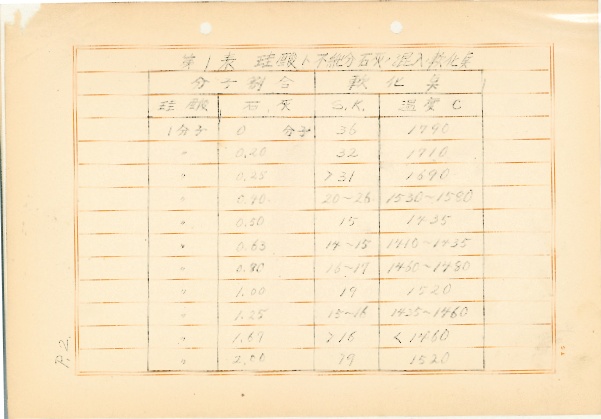 第1表 珪酸ト不純分石灰ノ混入ト軟化点
分子割合 軟化点
珪酸 石灰 S.K. 温度 C
1分子 0 分子 36 1790
〃 0.20 32 1710
〃 0.25 >31 1690
〃 0.40 20~26 1530~1580
〃 0.50 15 1435
〃 0.63 14~15 1410~1435
〃 0.80 16~17 1460~1480
〃 1.00 19 1520
〃 1.25 15~16 1435~1460
〃 1.67 >16 <1460
〃 2.00 19 1520
P.2.